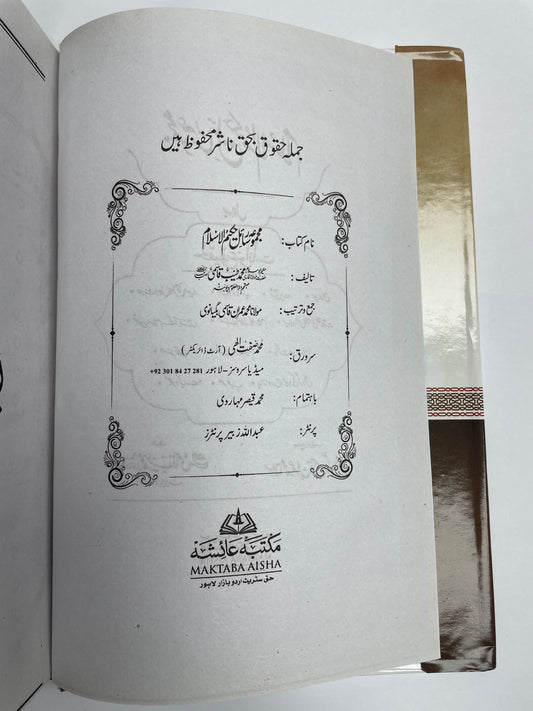 جملہ حقوق بحق ناشر محفوظ ہیں
نام کتاب: مجموعہ رسائل حکیم الاسلام
تالیف: محمد طیب قاسمی
جمع و ترتیب: مولانا محمد عمران قاسمی بگیانوی
سرورق: محمد صفت الٰہی (آرٹ ڈائریکٹر)
میڈیا سروسز - لاہور +92 301 84 27 281
باہتمام: محمد قیصر مہاروی
پرنٹر: عبداللہ زبیر پرنٹرز
مکتبہ عائشہ
MAKTABA AISHA
حق سٹریٹ اردو بازار لاہور